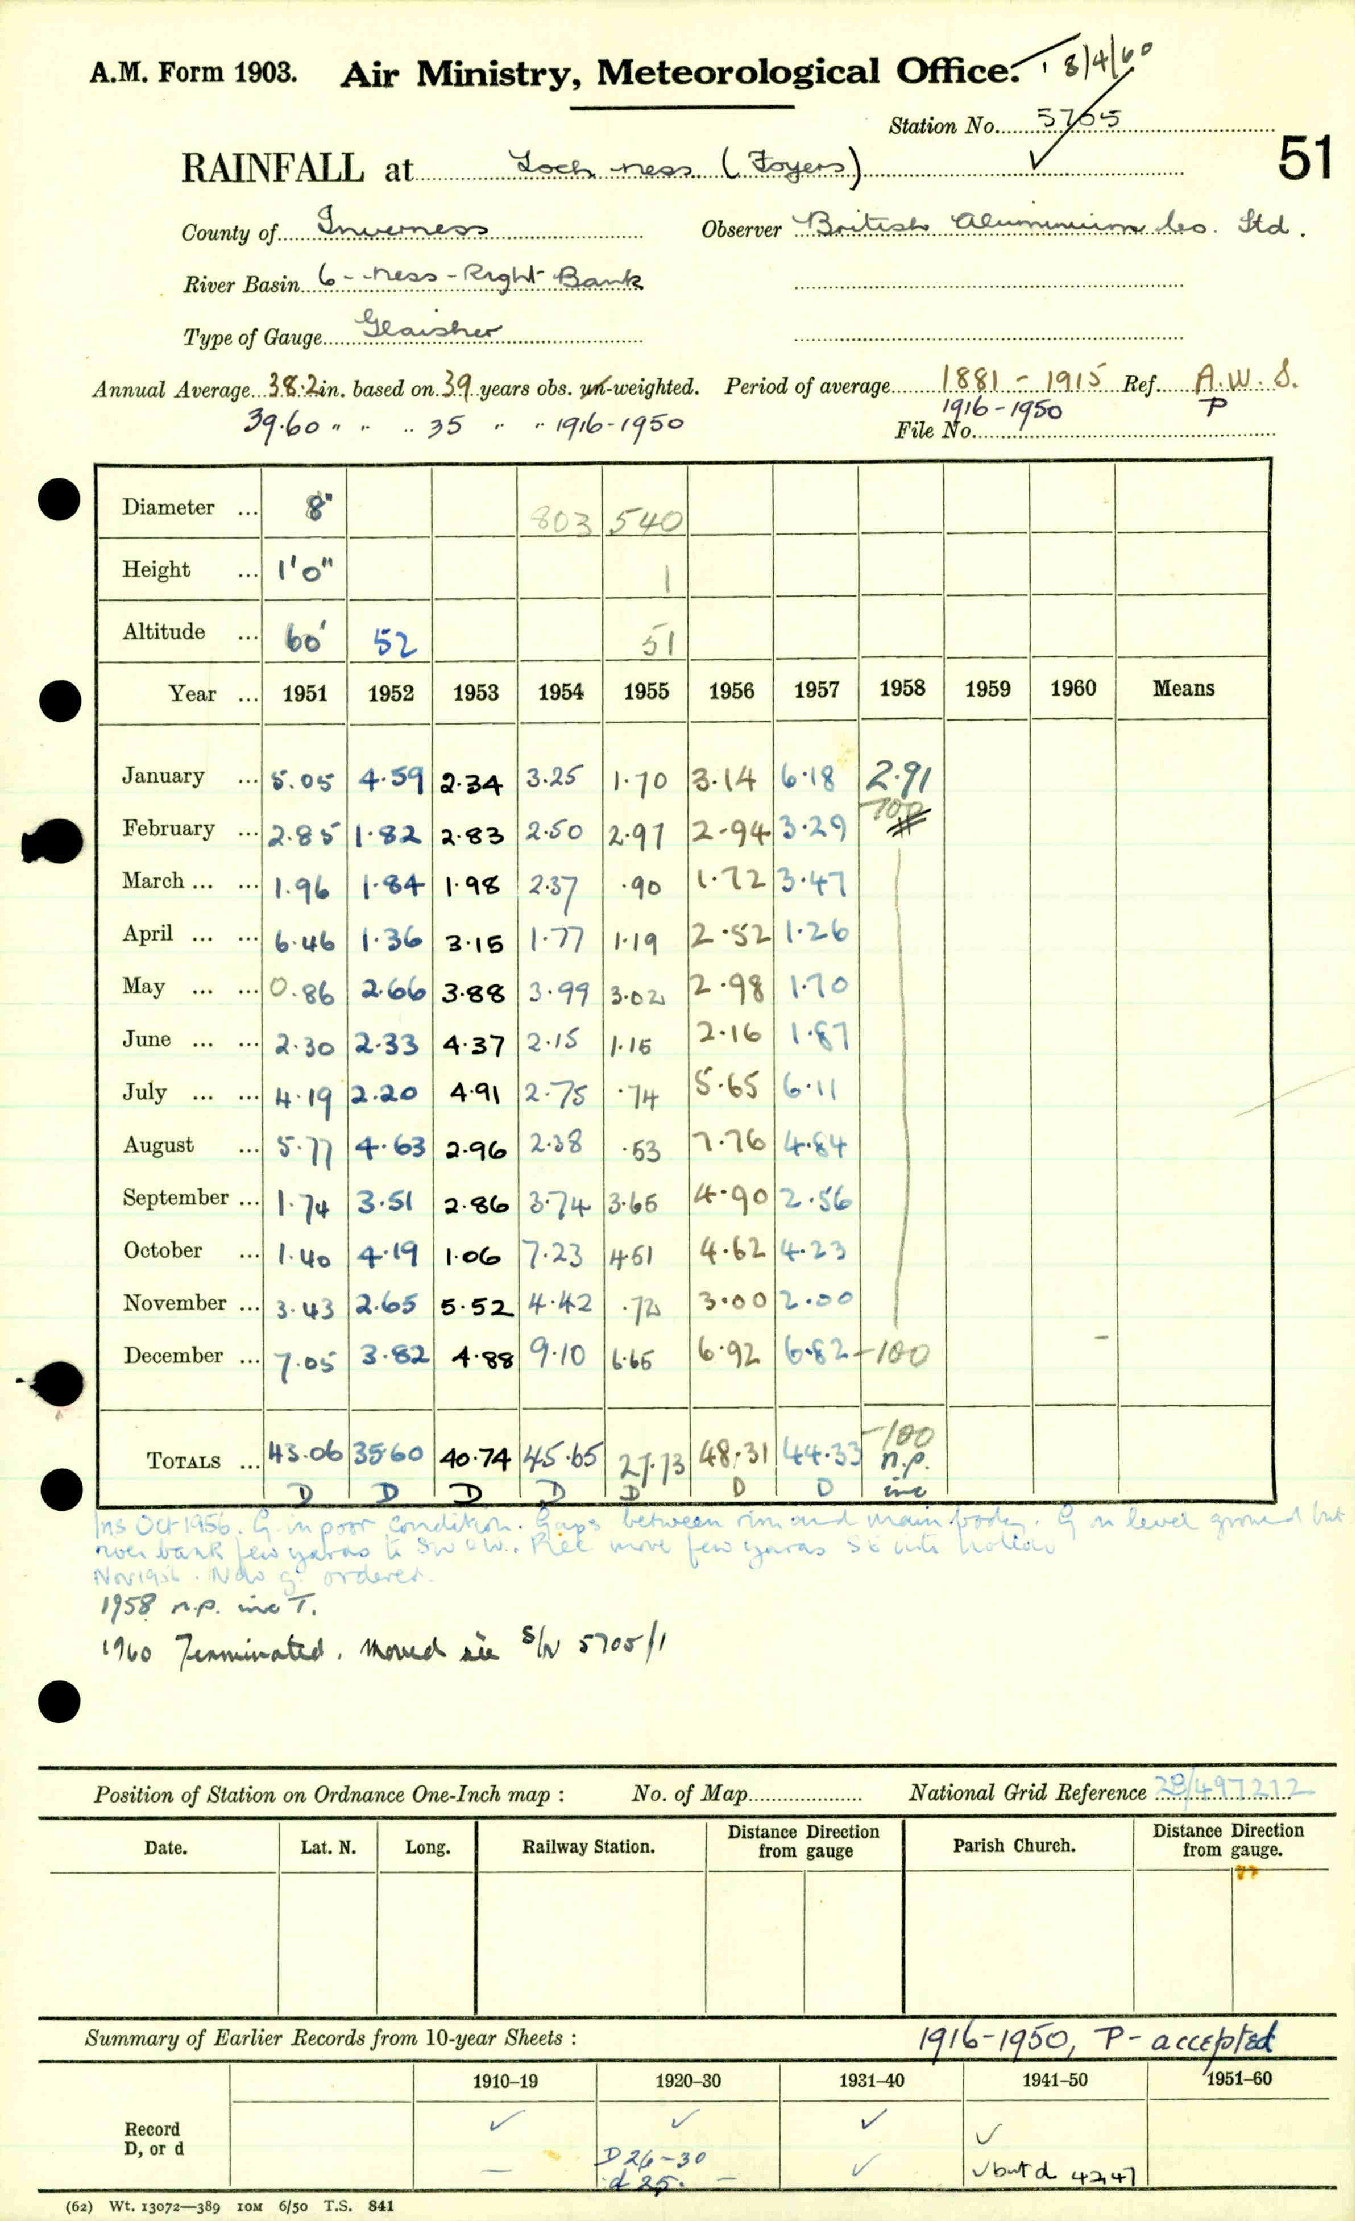 A.M. Form 1903. Air Ministry, Meteorological Office. 8/4/60
Station No. 5705
51
RAINFALL at Loch Ness (Foyers)
County of Inverness Observer British Aluminium Co. Ltd.
River Basin 6 - Ness - Right Bank
Type of Gauge Glaisher
Annual Average 38.2 in. based on 39 years obs. un-weighted. Period of average 1881 - 1915 Ref. A.W.S.
39.60 " " .. 35 " " 1916-1950 1916-1950 P
File No.
Diameter ... 8" 803 540
Height ... 1'0" 1
Altitude ... 60' 52 51
Year ... 1951 1952 1953 1954 1955 1956 1957 1958 1959 1960 Means
January ... 5.05 4.59 2.34 3.25 1.70 3.14 6.18 2.91
February ... 2.85 1.82 2.83 2.50 2.97 2.94 3.29 -100
March ... ... 1.96 1.84 1.98 2.37 .90 1.72 3.47
April ... ... 6.46 1.36 3.15 1.77 1.19 2.52 1.26
May ... ... 0.86 2.66 3.88 3.99 3.02 2.98 1.70
June ... ... 2.30 2.33 4.37 2.15 1.15 2.16 1.87
July ... ... 4.19 2.20 4.91 2.75 .74 5.65 6.11
August ... 5.77 4.63 2.96 2.38 .53 7.76 4.84
September ... 1.74 3.51 2.86 3.74 3.65 4.90 2.56
October ... 1.40 4.19 1.06 7.23 4.51 4.62 4.23
November ... 3.43 2.65 5.52 4.42 .72 3.00 2.00
December ... 7.05 3.82 4.88 9.10 6.65 6.92 6.82 -100 -
-100
TOTALS ... 43.06 35.60 40.74 45.65 27.73 48.31 44.33 n.p.
D D D D D D D inc
Ins Oct 1956. G. in poor condition. Gaps between rim and main body. G on level ground but
river bank few yards to SW & W. Rec move few yards SE into hollow
Nov 1956. New g. ordered.
1958 n.p. inc T.
1960 Terminated. Moved see S/N 5705/1
Position of Station on Ordnance One-Inch map : No. of Map National Grid Reference 28/497212
Date. Lat. N. Long. Railway Station. Distance Direction from gauge Parish Church. Distance Direction from gauge.
Summary of Earlier Records from 10-year Sheets : 1916-1950, P - accepted
1910–19 1920–30 1931–40 1941–50 1951–60
Record ✓ ✓ ✓ ✓
D, or d — D 26-30 ✓ ✓ but d 42,47
d 25. —
(62) Wt. 13072—389 10M 6/50 T.S. 841